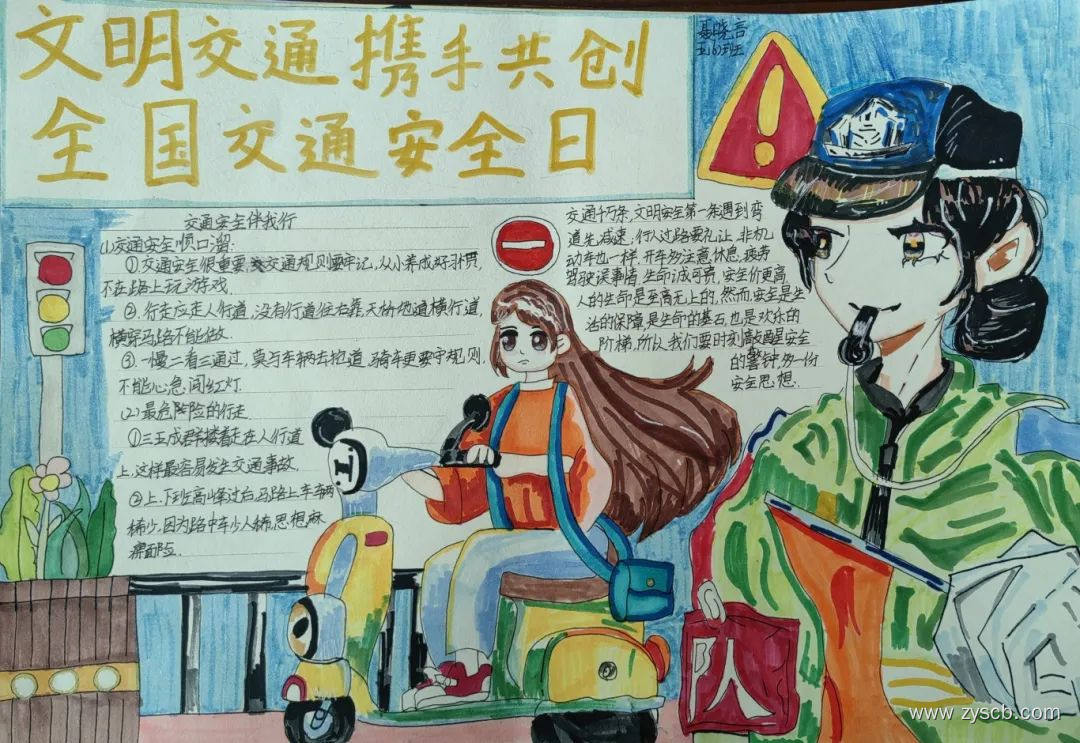 文明交通携手共创
全国交通安全日
聂晓言
五(6)班
交通安全伴我行
(1)交通安全顺口溜:
①交通安全很重要,交通规则要牢记,从小养成好习惯,
不在路上玩游戏.
②行走应走人行道,没有行道往右靠天桥地道横行道,
横穿马路不能做.
③一慢二看三通过,莫与车辆去抢道,骑车更要守规则,
不能心急闯红灯.
(2)最危险的行走
①三五成群横着走在人行道
上.这样最容易发生交通事故.
②上.下班高峰过后马路上车辆
稀少.因为路中车少人稀,思想麻
痹面险.
交通千万条,文明安全第一条遇到弯
道先减速,行人过路要礼让,非机
动车也一样.开车多注意休息,疲劳
驾驶误事情生命诚可贵,安全价更高,
人的生命是至高无上的,然而,安全是生
活的保障,是生命的基石,也是欢乐的
阶梯,所以我们要时刻敲醒安全
的警钟,多一份
安全思想.
队
www.zyscb.com